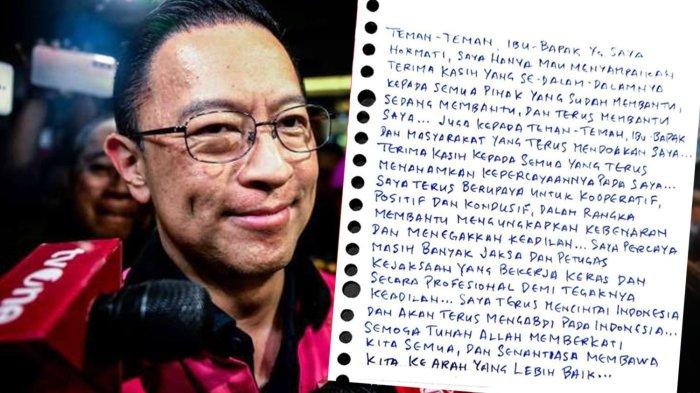 tvOne
TEMAN-TEMAN, IBU-BAPAK YG SAYA
HORMATI, SAYA HANYA MAU MENYAMPAIKAN
TERIMA KASIH YANG SE-DALAM-DALAMNYA
KEPADA SEMUA PIHAK YANG SUDAH MEMBANTU,
SEDANG MEMBANTU, DAN TERUS MEMBANTU
SAYA... JUGA KEPADA TEMAN-TEMAN, IBU-BAPAK
DAN MASYARAKAT YANG TERUS MENDOAKAN SAYA...
TERIMA KASIH KEPADA SEMUA YANG TERUS
MENANAMKAN KEPERCAYAANNYA PADA SAYA...
SAYA TERUS BERUPAYA UNTUK KOOPERATIF,
POSITIF DAN KONDUSIF, DALAM RANGKA
MEMBANTU MENGUNGKAPKAN KEBENARAN
DAN MENEGAKKAN KEADILAN... SAYA PERCAYA
MASIH BANYAK JAKSA DAN PETUGAS
KEJAKSAAN YANG BEKERJA KERAS DAN
SECARA PROFESIONAL DEMI TEGAKNYA
KEADILAN... SAYA TERUS MENCINTAI INDONESIA
DAN AKAN TERUS MENGABDI PADA INDONESIA...
SEMOGA TUHAN ALLAH MEMBERKATI
KITA SEMUA, DAN SENANTIASA MEMBAWA
KITA KE ARAH YANG LEBIH BAIK...